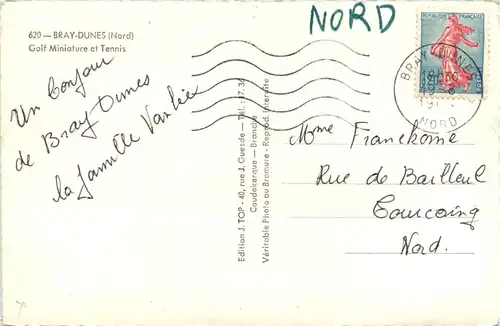 620 — BRAY-DUNES (Nord)
Golf Miniature et Tennis
NORD
REPUBLIQUE FRANÇAISE
BRAY-DUNES
NORD
Un bonjour
de Bray-Dunes
la famille
Edition J. TOP - 40, rue J. Guesde — Tél. : 7.36
Coudekerque - Branche
Véritable Photo au Bromure - Reprod. Interdite
Mme Franckome
Rue de Bailleul
Tourcoing
Nord.